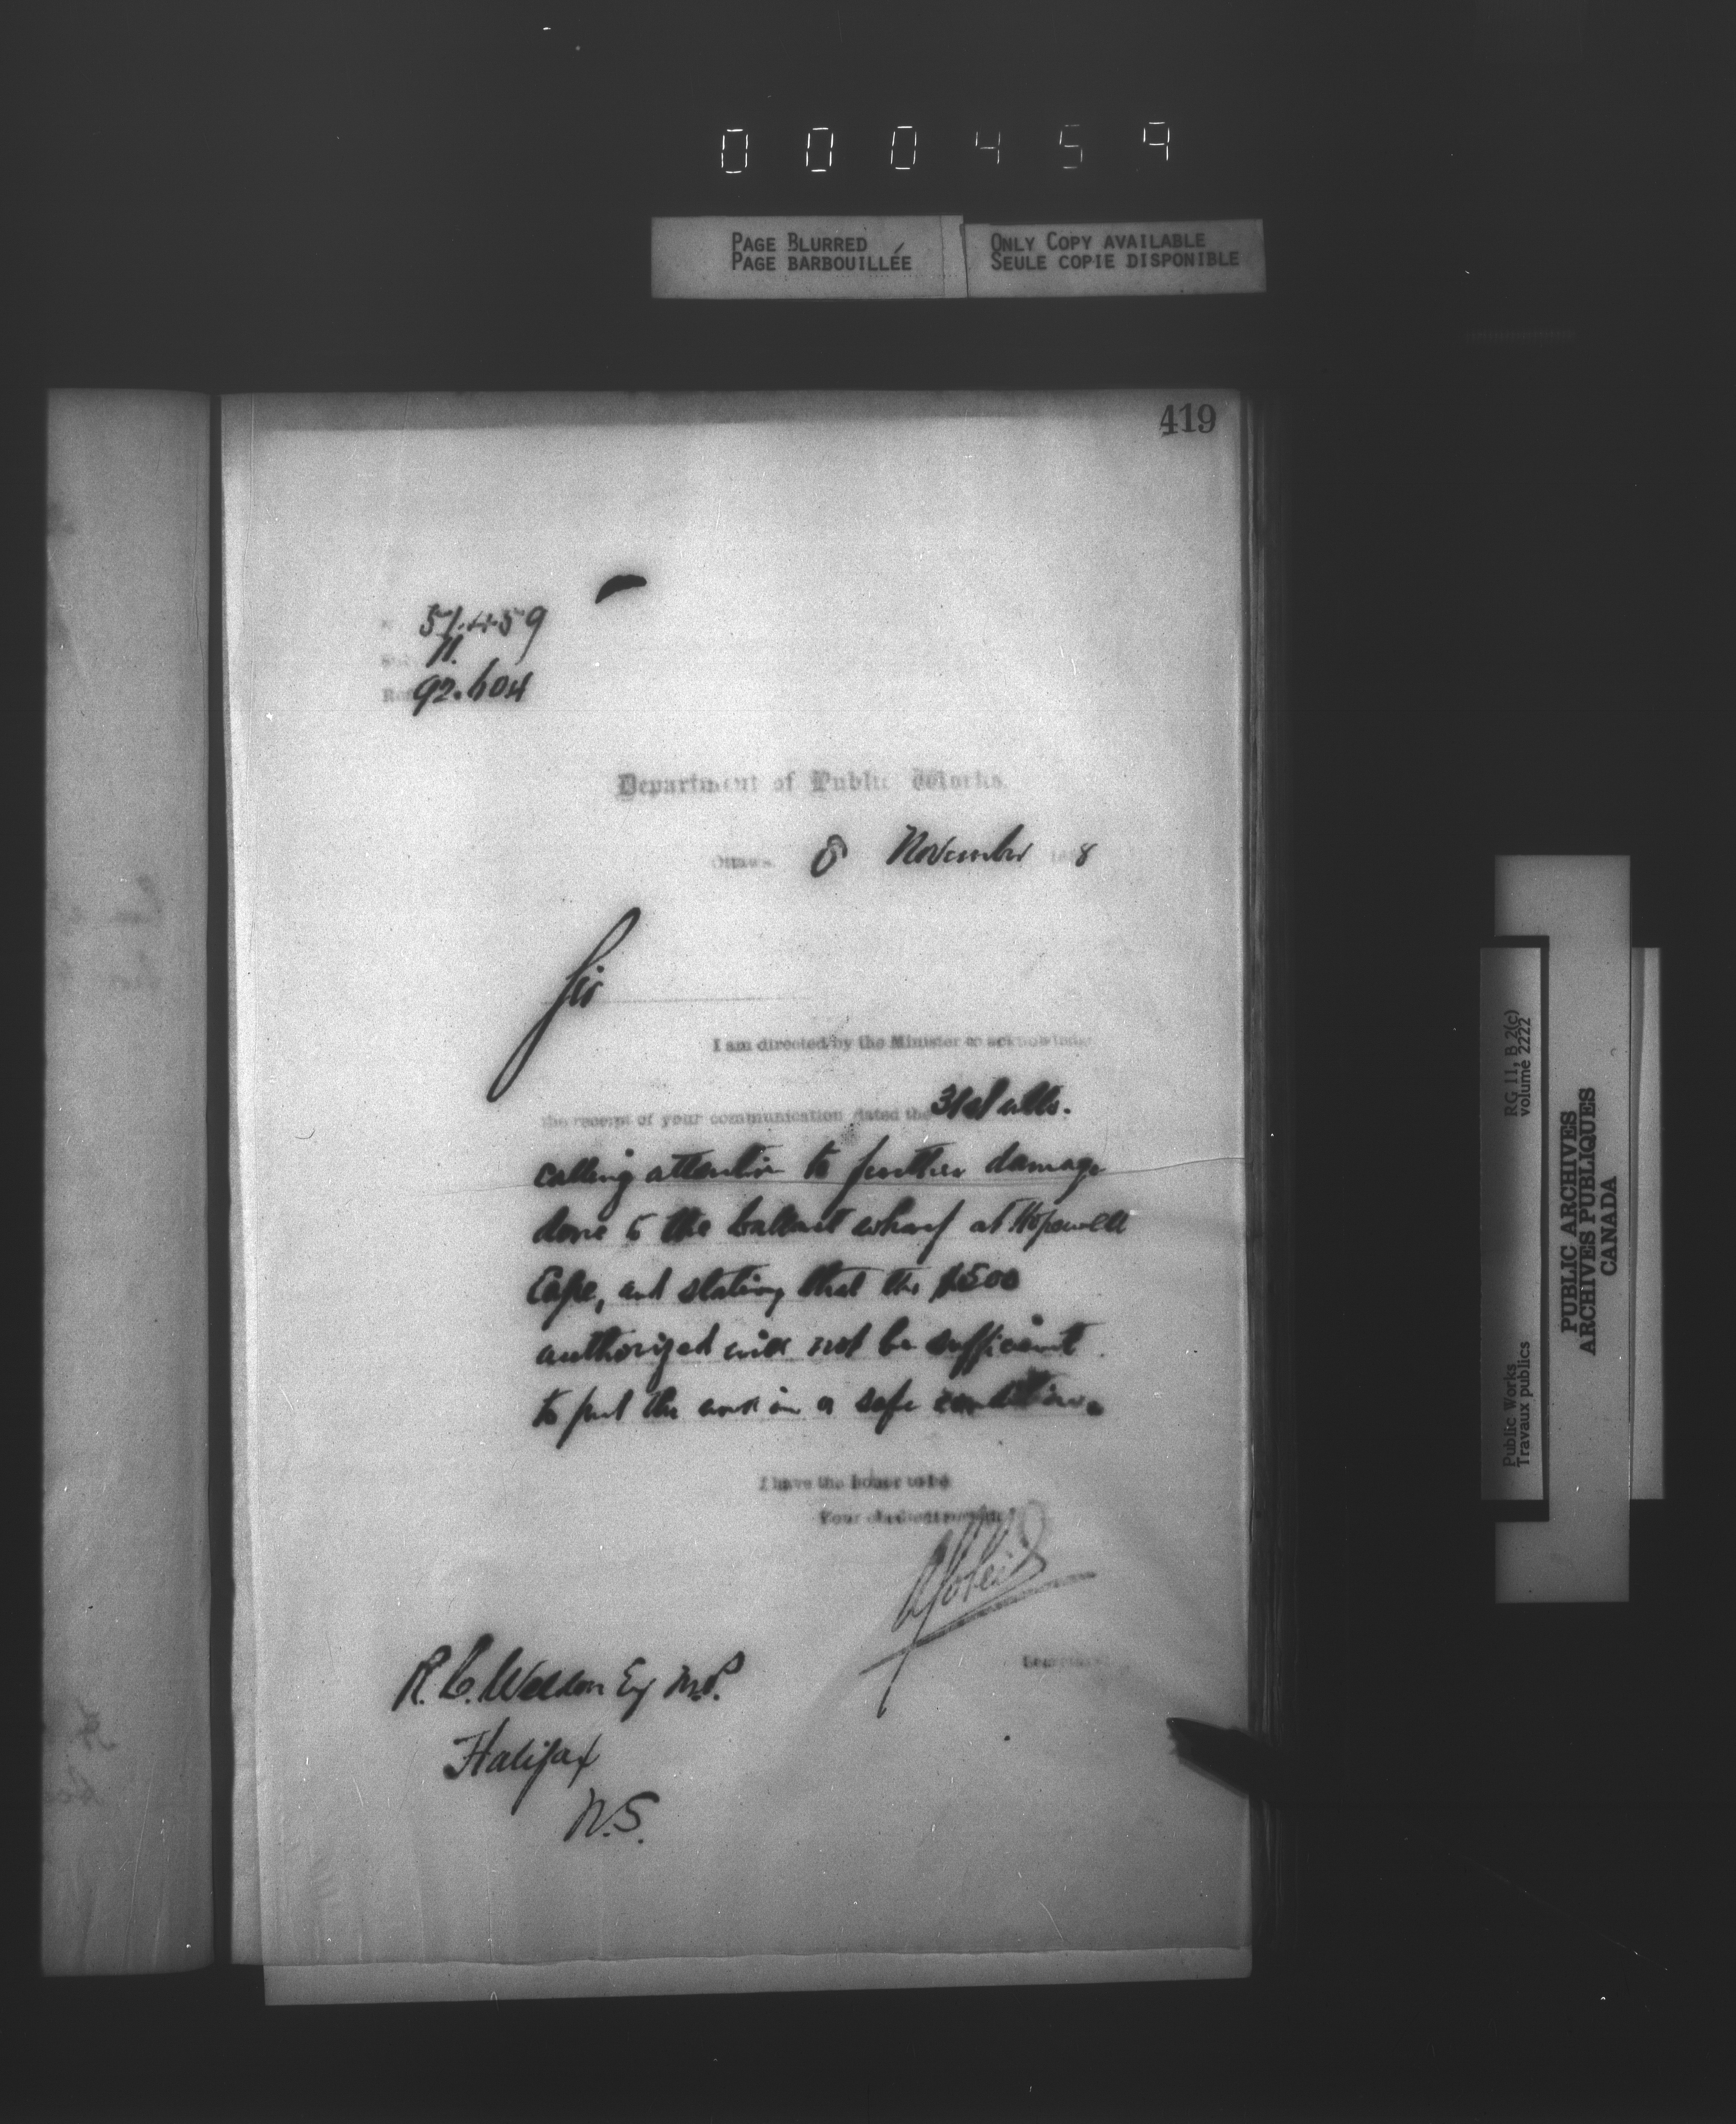 000459
PAGE BLURRED
PAGE BARBOUILLÉE
ONLY COPY AVAILABLE
SEULE COPIE DISPONIBLE
419
11.
92.604
Department of Public Works.
Ottawa. 8 November 188
Sir
I am directed by the Minister to acknowledge
the receipt of your communication dated the 31st ulto.
calling attention to further damage
done to the ballast wharf at Hopewell
Cape, and stating that the $500
authorized will not be sufficient
to put the work in a safe condition.
I have the honor to be
Your obedient servant
Secretary
R. C. Weldon Esq M.P.
Halifax
N.S.
Public Works
Travaux publics
RG 11, B 2(c)
volume 2222
PUBLIC ARCHIVES
ARCHIVES PUBLIQUES
CANADA